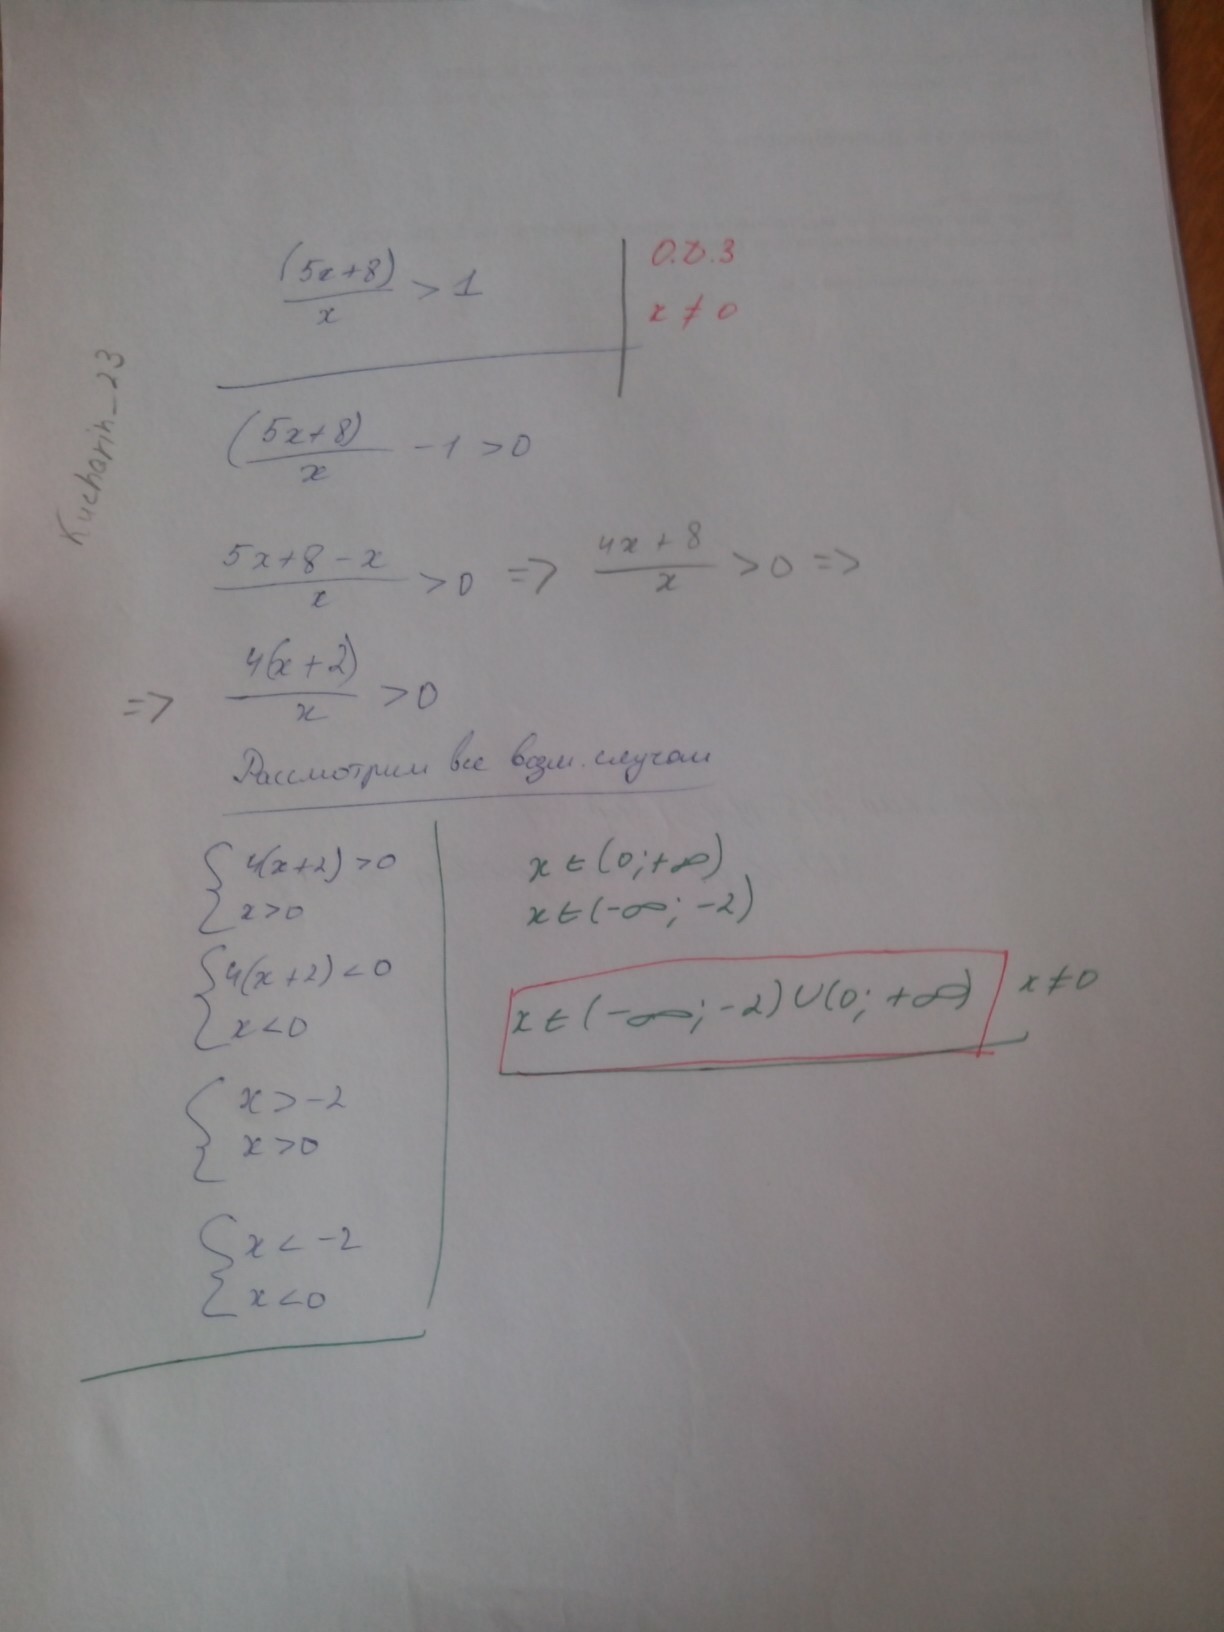 (5x+8)/x > 1
О.D.З
x ≠ 0
Kucharin_23
(5x+8)/x - 1 > 0
(5x+8-x)/x > 0 => (4x+8)/x > 0 =>
=> 4(x+2)/x > 0
Рассмотрим все возм. случаи
{ 4(x+2) > 0
x > 0
{ 4(x+2) < 0
x < 0
{ x > -2
x > 0
{ x < -2
x < 0
x ∈ (0; +∞)
x ∈ (-∞; -2)
x ∈ (-∞; -2) ∪ (0; +∞) x ≠ 0